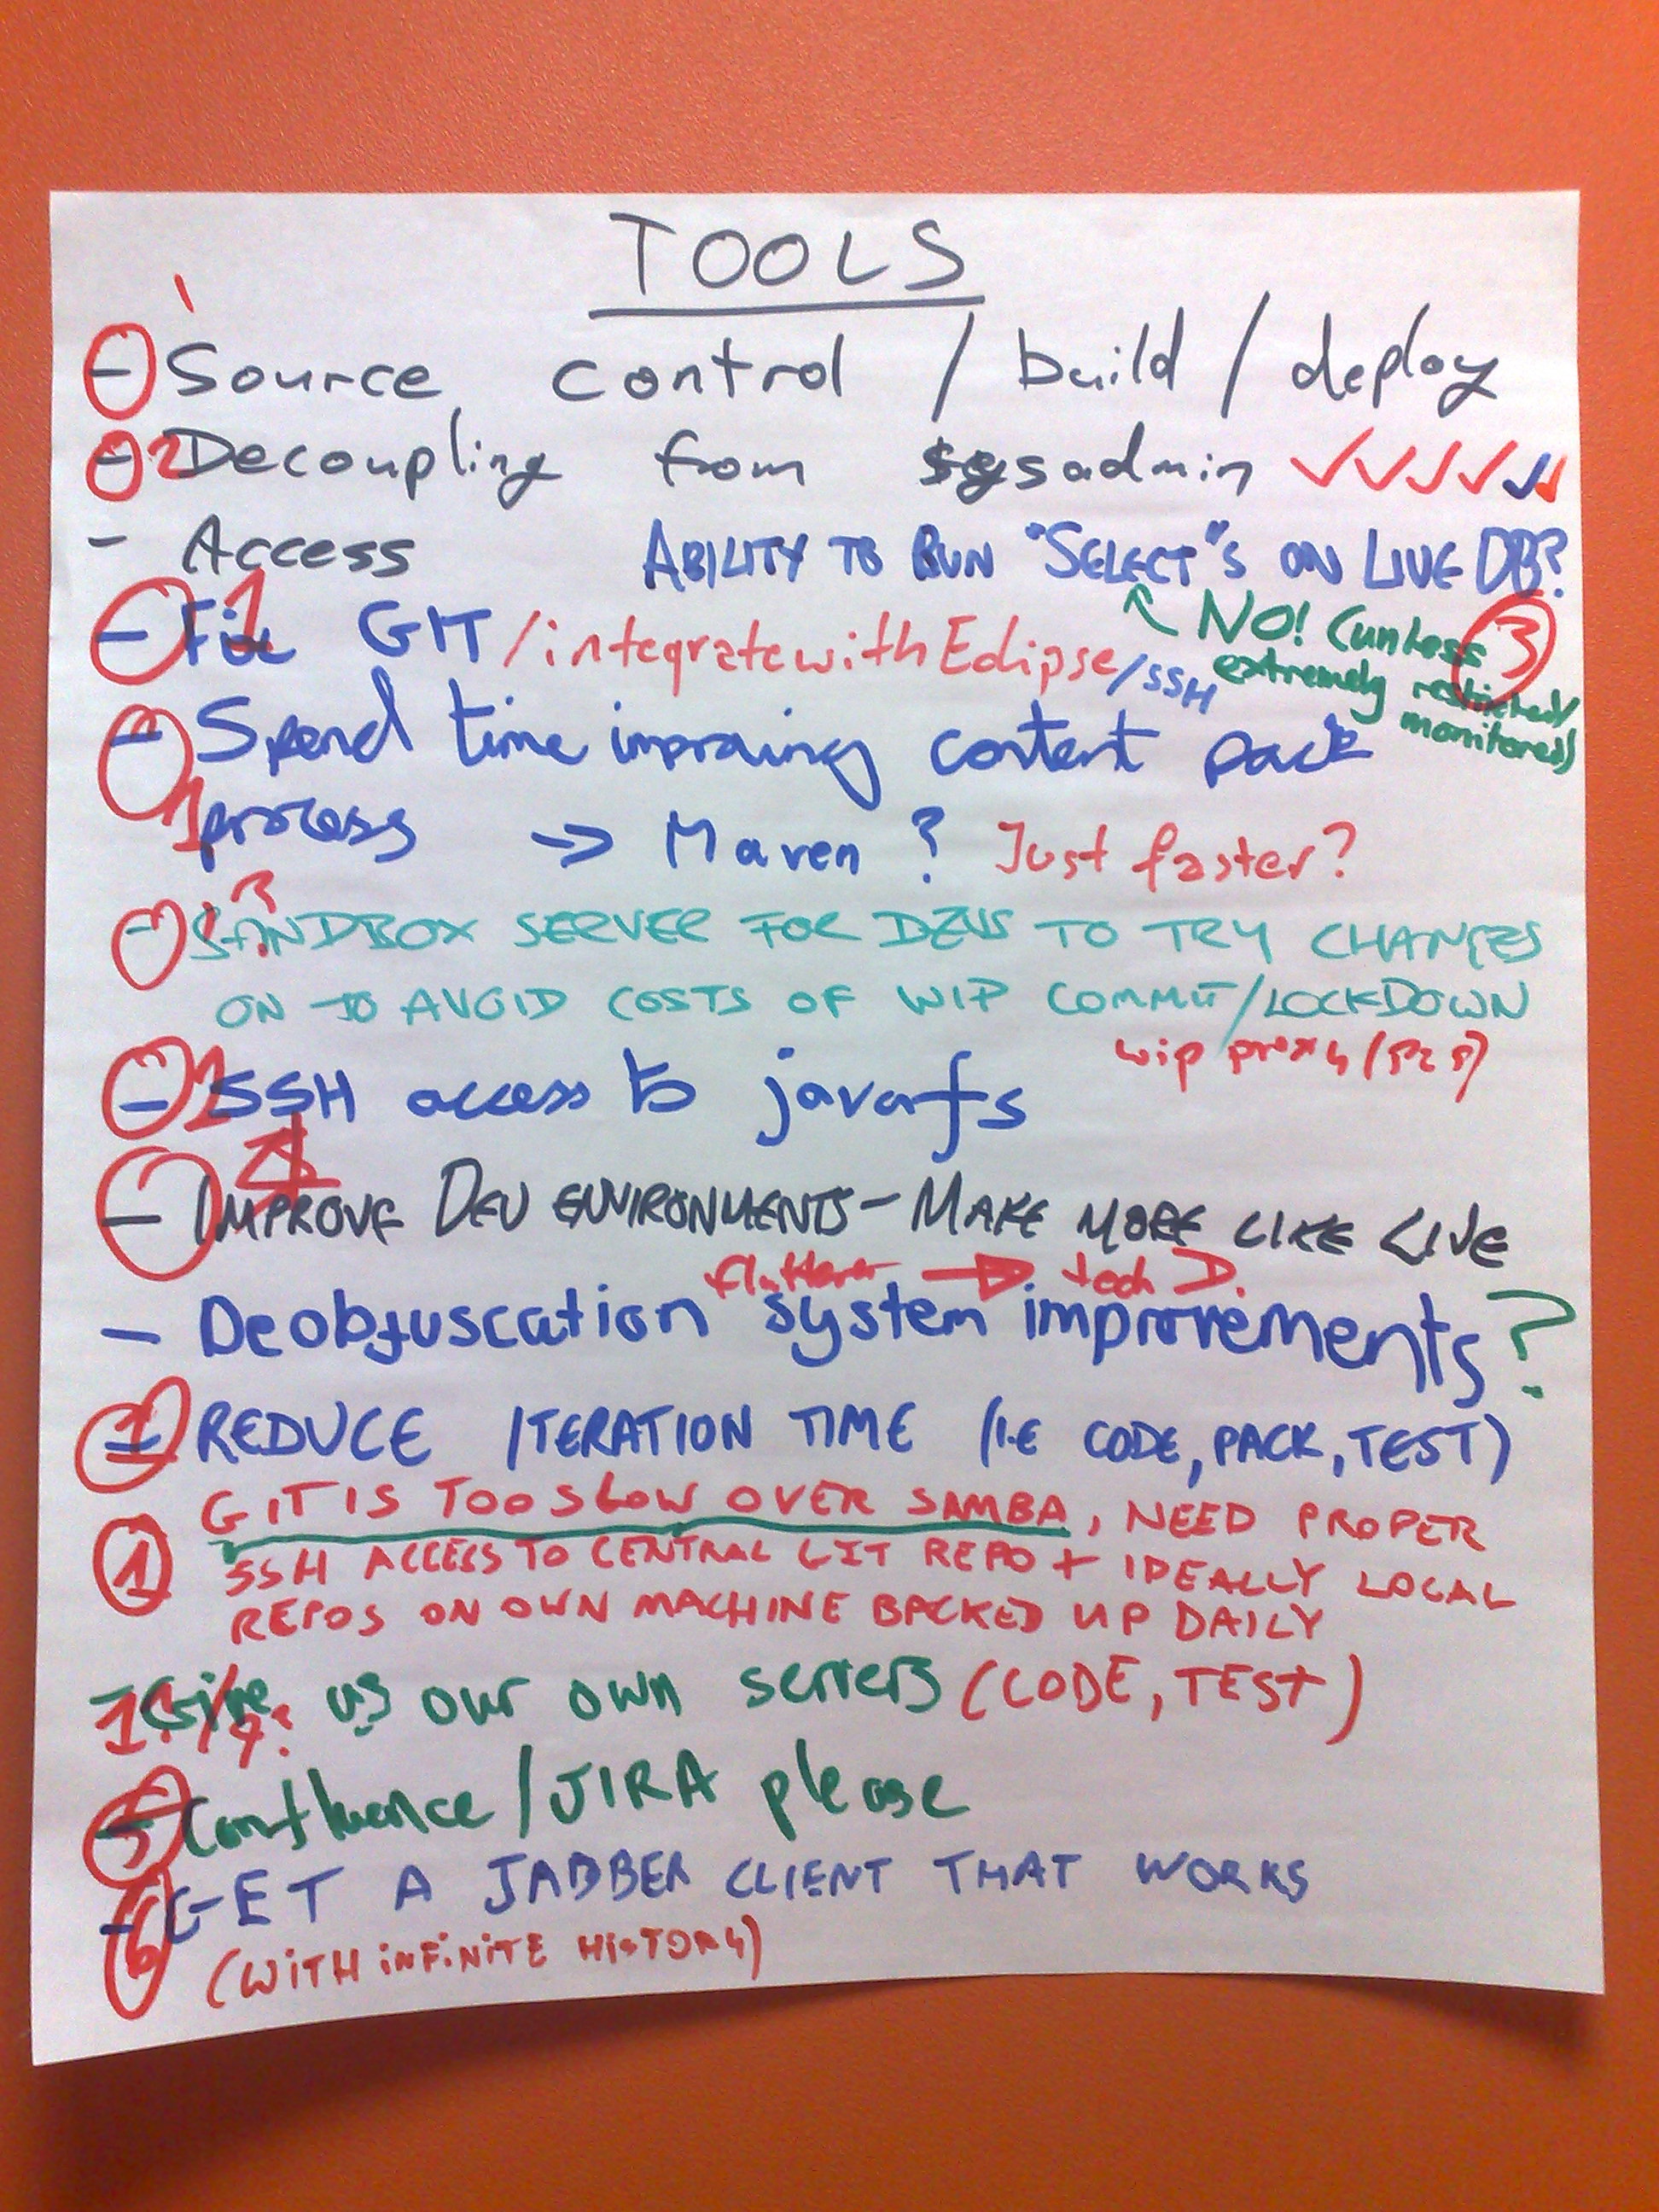 TOOLS
1
- Source control / build / deploy
- 2 Decoupling from $ysadmin ✓✓✓✓✓✓
- Access ABILITY TO RUN "SELECT"S ON LIVE DB?
NO! (unless
3
- Fix 1 GIT /integrate with Eclipse/SSH
extremely restricted/
monitored)
- Spend time improving content pack
1 process -> Maven? Just faster?
3
- SANDBOX SERVER FOR DEVS TO TRY CHANGES
ON TO AVOID COSTS OF WIP COMMIT/LOCKDOWN
wip proxy
- 1 SSH access to javafs
- IMPROVE DEV ENVIRONMENTS - MAKE MORE LIKE LIVE
→ tech D.
- Deobfuscation system improvements?
- 1 REDUCE ITERATION TIME (I.E CODE, PACK, TEST)
GIT IS TOO SLOW OVER SAMBA, NEED PROPER
1 SSH ACCESS TO CENTRAL GIT REPO + IDEALLY LOCAL
REPOS ON OWN MACHINE BACKED UP DAILY
- 1 Give us our own servers (CODE, TEST)
- 5 Confluence/JIRA please
- GET A JABBER CLIENT THAT WORKS
6 (WITH INFINITE HISTORY)